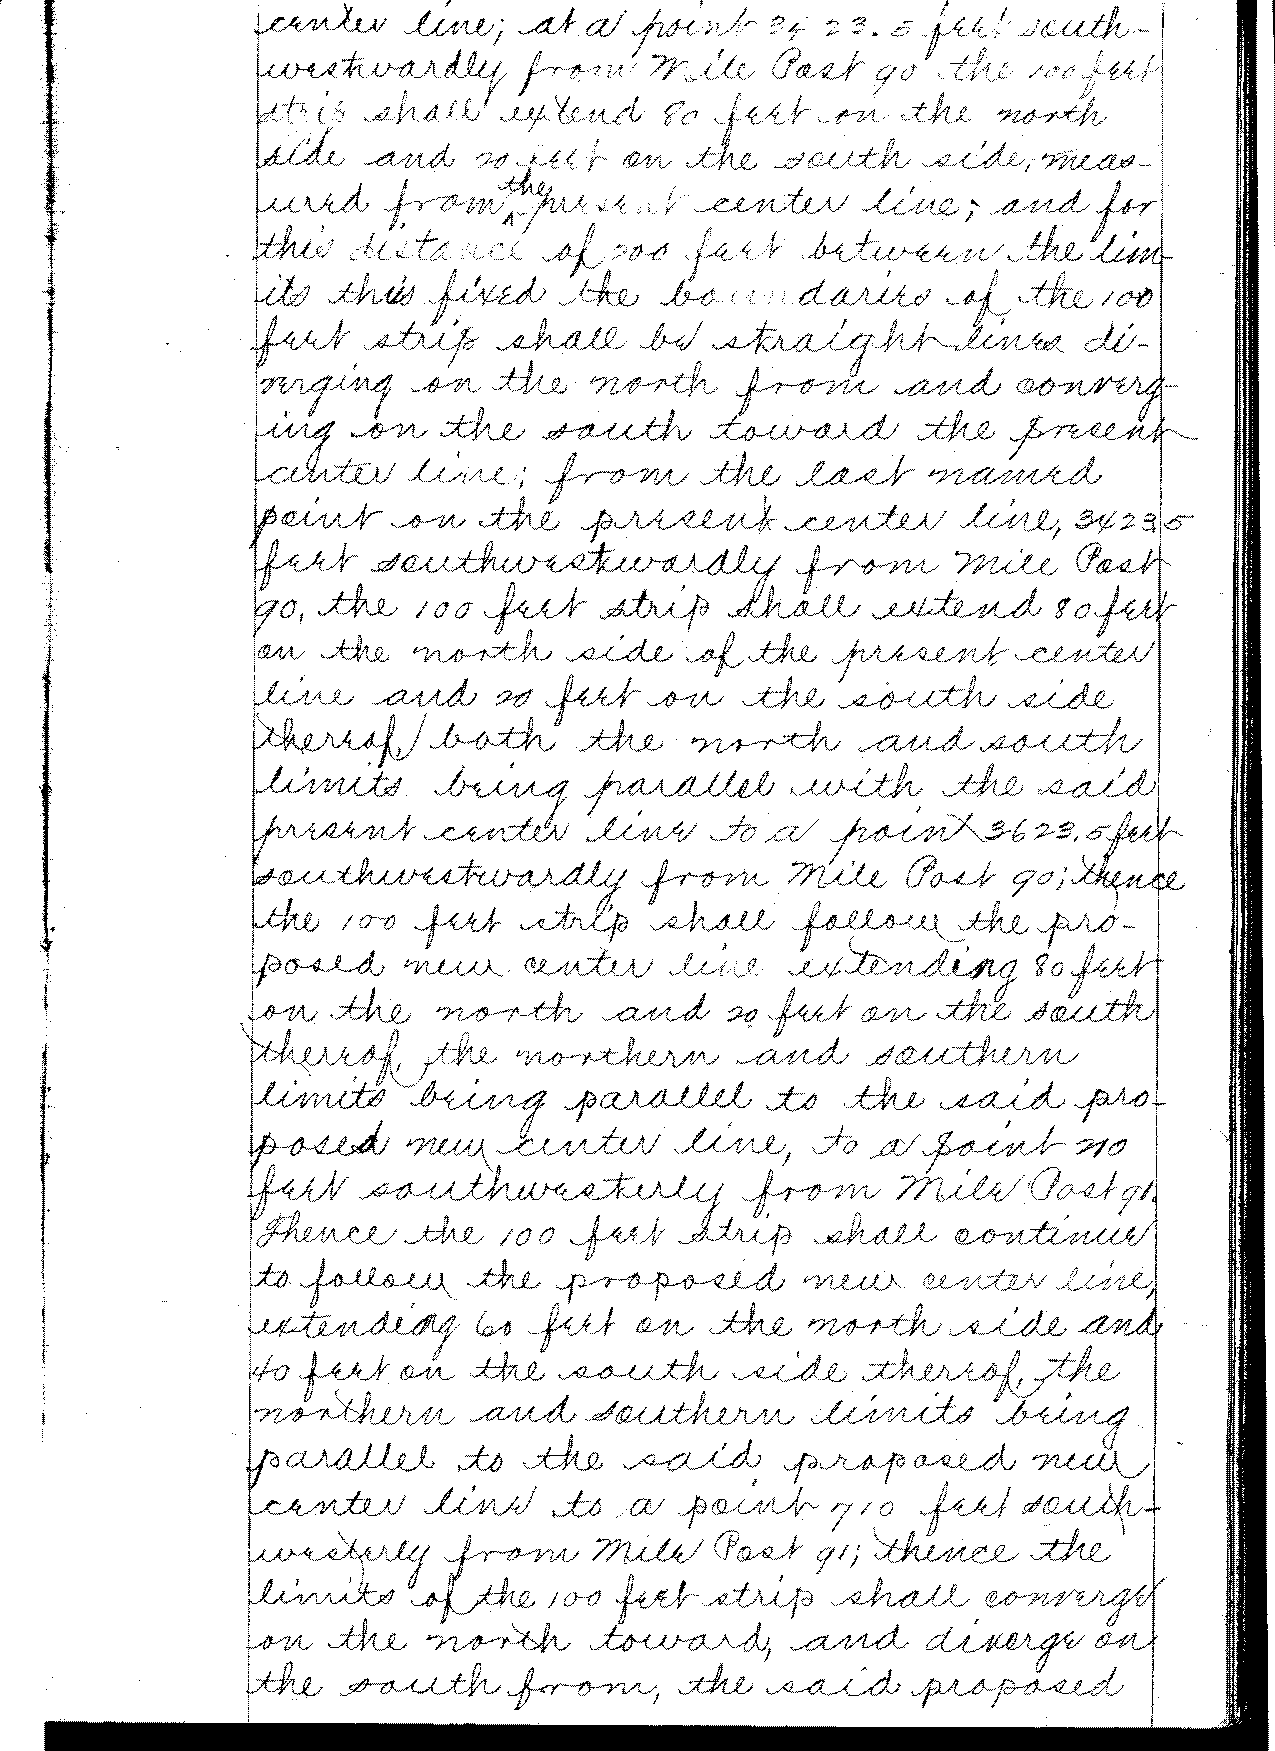 center line; at a point 3423.5 feet south-
westwardly from Mile Post 90 the 100 feet
strip shall extend 80 feet on the north
side and 20 feet on the south side, meas-
ured from the present center line; and for
this distance of 200 feet between the lim-
its this fixed the boundaries of the 100
feet strip shall be straight lines di-
verging on the north from and converg-
ing on the south toward the present
center line; from the last named
point on the present center line, 3423.5
feet southwestwardly from Mile Post
90, the 100 feet strip shall extend 80 feet
on the north side of the present center
line and 20 feet on the south side
thereof, both the north and south
limits being parallel with the said
present center line to a point 3623.5 feet
southwestwardly from Mile Post 90; thence
the 100 feet strip shall follow the pro-
posed new center line extending 80 feet
on the north and 20 feet on the south
thereof, the northern and southern
limits being parallel to the said pro-
posed new center line, to a point 210
feet southwesterly from Mile Post 91.
Thence the 100 feet strip shall continue
to follow the proposed new center line,
extending 60 feet on the north side and
40 feet on the south side thereof, the
northern and southern limits being
parallel to the said proposed new
center line to a point 710 feet south-
westerly from Mile Post 91; thence the
limits of the 100 feet strip shall converge
on the north toward, and diverge on
the south from, the said proposed